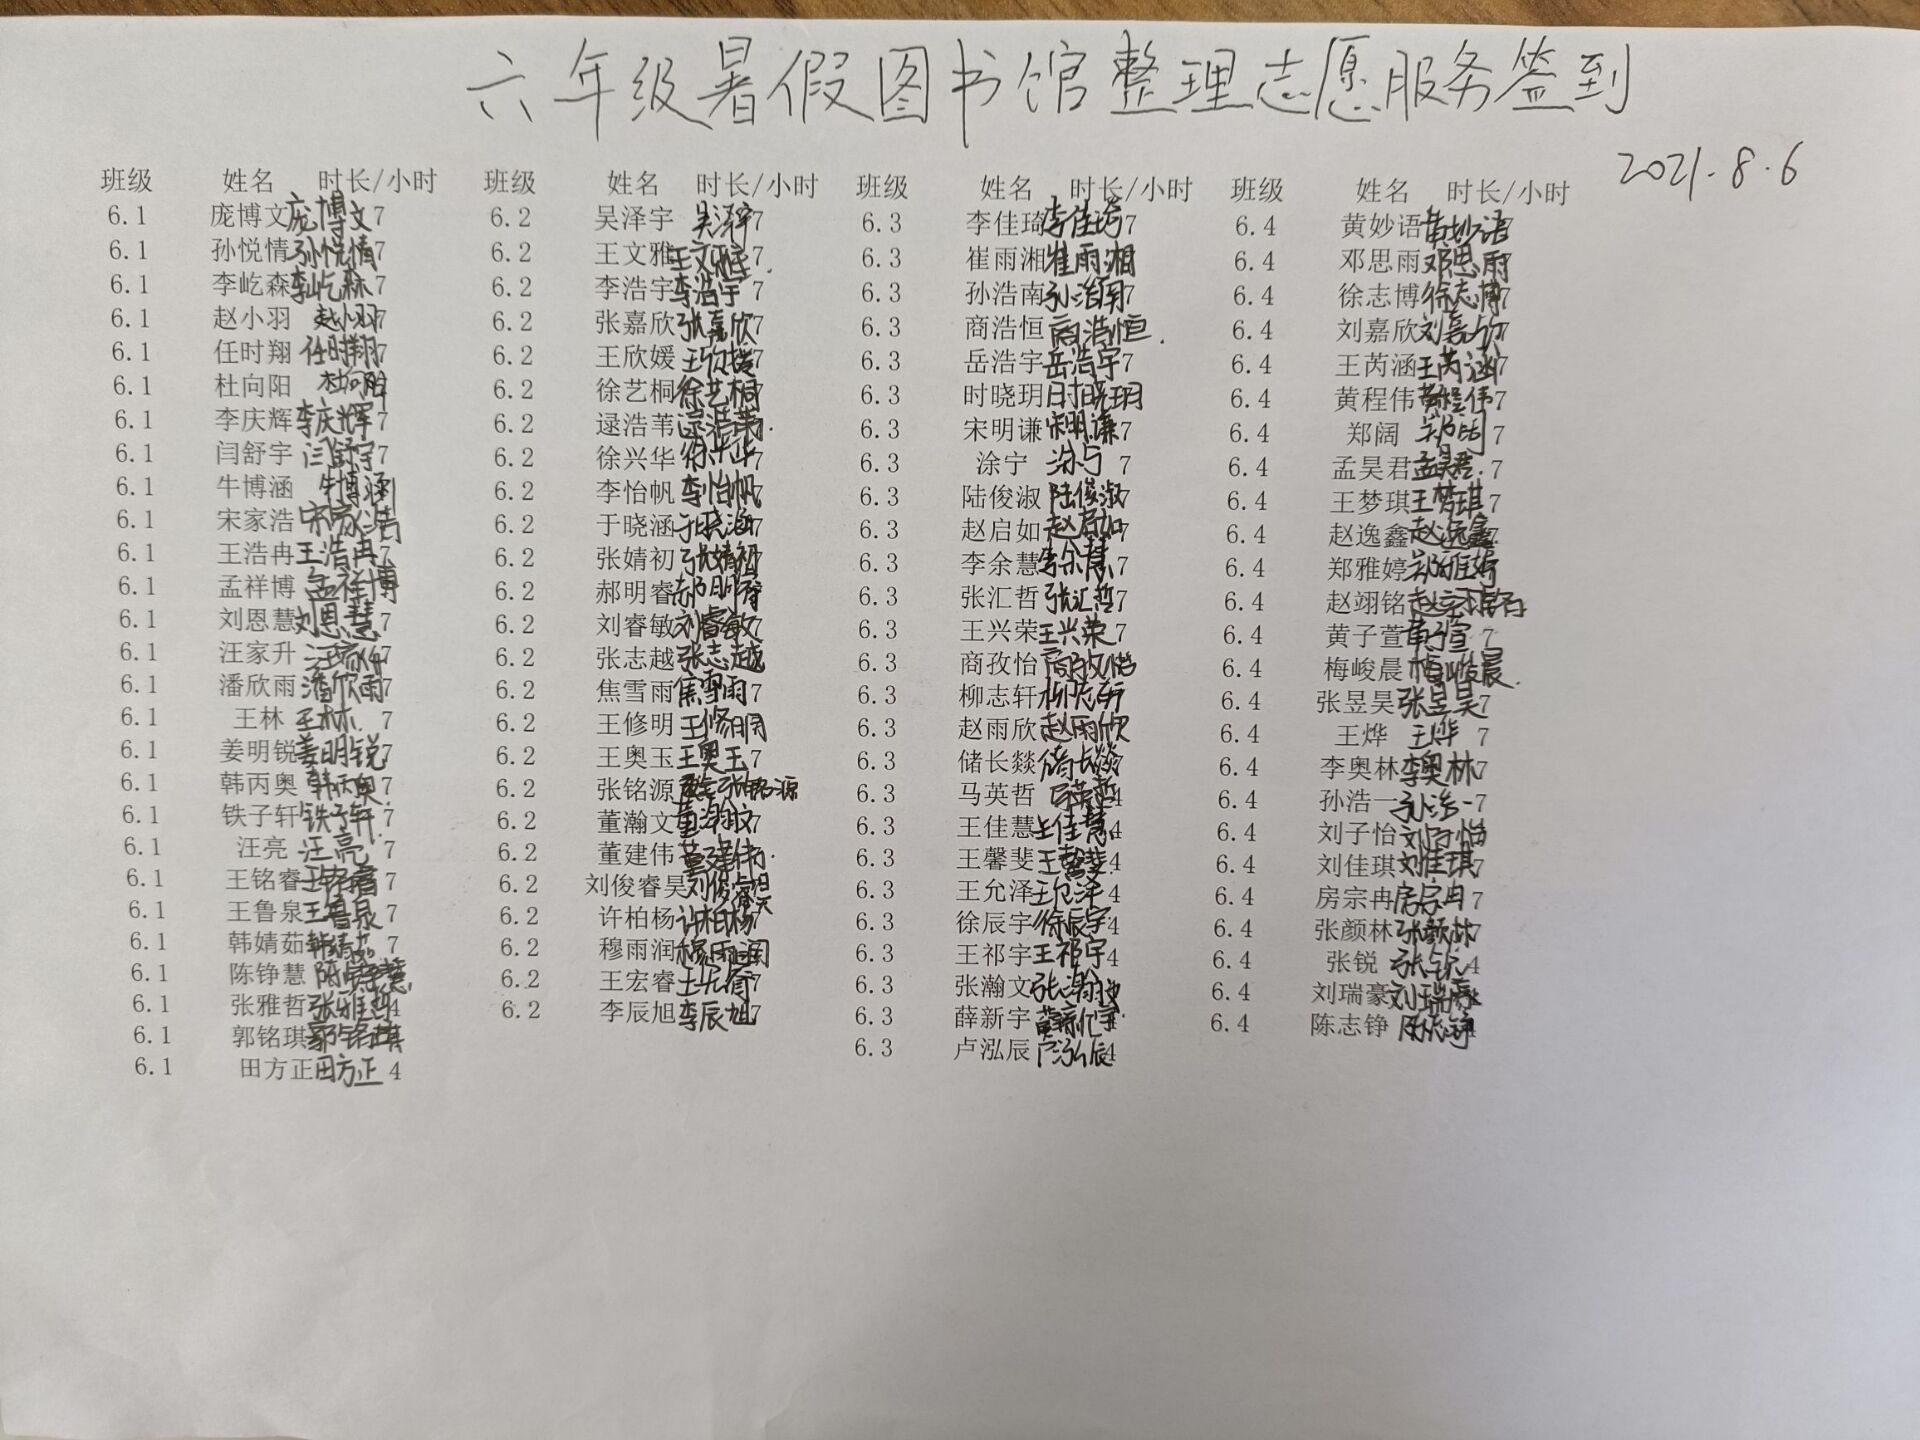 六年级暑假图书馆整理志愿服务签到
2021.8.6
班级 姓名 时长/小时 班级 姓名 时长/小时 班级 姓名 时长/小时 班级 姓名 时长/小时
6.1 庞博文 庞博文 7 6.2 吴泽宇 吴泽宇 7 6.3 李佳琦 李佳琦 7 6.4 黄妙语 黄妙语 7
6.1 孙悦情 孙悦情 7 6.2 王文雅 王文雅 6.3 崔雨湘 崔雨湘 6.4 邓思雨 邓思雨 7
6.1 李屹森 李屹森 7 6.2 李浩宇 李浩宇 7 6.3 孙浩南 孙浩南 7 6.4 徐志博 徐志博 7
6.1 赵小羽 赵小羽 7 6.2 张嘉欣 张嘉欣 7 6.3 商浩恒 商浩恒 6.4 刘嘉欣 刘嘉欣
6.1 任时翔 任时翔 7 6.2 王欣媛 王欣媛 7 6.3 岳浩宇 岳浩宇 7 6.4 王芮涵 王芮涵 7
6.1 杜向阳 杜向阳 6.2 徐艺桐 徐艺桐 7 6.3 时晓玥 时晓玥 6.4 黄程伟 黄程伟 7
6.1 李庆辉 李庆辉 7 6.2 逯浩苇 6.3 宋明谦 宋明谦 7 6.4 郑阔 郑阔 7
6.1 闫舒宇 闫舒宇 7 6.2 徐兴华 徐兴华 7 6.3 涂宁 涂宁 7 6.4 孟昊君 孟昊君 7
6.1 牛博涵 牛博涵 6.2 李怡帆 李怡帆 7 6.3 陆俊淑 陆俊淑 7 6.4 王梦琪 王梦琪 7
6.1 宋家浩 宋家浩 6.2 于晓涵 于晓涵 7 6.3 赵启如 赵启如 7 6.4 赵逸鑫 赵逸鑫 7
6.1 王浩冉 王浩冉 7 6.2 张婧初 张婧初 7 6.3 李余慧 李余慧 7 6.4 郑雅婷 郑雅婷
6.1 孟祥博 孟祥博 6.2 郝明睿 郝明睿 7 6.3 张汇哲 张汇哲 7 6.4 赵翊铭 赵翊铭
6.1 刘恩慧 刘恩慧 7 6.2 刘睿敏 刘睿敏 7 6.3 王兴荣 王兴荣 7 6.4 黄子萱 黄子萱 7
6.1 汪家升 汪家升 7 6.2 张志越 张志越 6.3 商孜怡 商孜怡 6.4 梅峻晨 梅峻晨
6.1 潘欣雨 潘欣雨 7 6.2 焦雪雨 焦雪雨 7 6.3 柳志轩 柳志轩 7 6.4 张昱昊 张昱昊 7
6.1 王林 王林 7 6.2 王修明 王修明 6.3 赵雨欣 赵雨欣 6.4 王烨 王烨 7
6.1 姜明锐 姜明锐 7 6.2 王奥玉 王奥玉 7 6.3 储长燚 储长燚 7 6.4 李奥林 李奥林 7
6.1 韩丙奥 韩丙奥 7 6.2 张铭源 张铭源 6.3 马英哲 马英哲 4 6.4 孙浩一 孙浩一 7
6.1 铁子轩 铁子轩 7 6.2 董瀚文 董瀚文 7 6.3 王佳慧 王佳慧 4 6.4 刘子怡 刘子怡
6.1 汪亮 汪亮 7 6.2 董建伟 董建伟 6.3 王馨斐 王馨斐 4 6.4 刘佳琪 刘佳琪 7
6.1 王铭睿 王铭睿 7 6.2 刘俊睿昊 刘俊睿昊 6.3 王允泽 王允泽 4 6.4 房宗冉 房宗冉 7
6.1 王鲁泉 王鲁泉 7 6.2 许柏杨 许柏杨 7 6.3 徐辰宇 徐辰宇 4 6.4 张颜林 张颜林 7
6.1 韩婧茹 韩婧茹 7 6.2 穆雨润 穆雨润 6.3 王祁宇 王祁宇 4 6.4 张锐 张锐 4
6.1 陈铮慧 陈铮慧 6.2 王宏睿 王宏睿 7 6.3 张瀚文 张瀚文 6.4 刘瑞豪 刘瑞豪
6.1 张雅哲 张雅哲 4 6.2 李辰旭 李辰旭 7 6.3 薛新宇 薛新宇 6.4 陈志铮 陈志铮
6.1 郭铭琪 郭铭琪 6.3 卢泓辰 卢泓辰 4
6.1 田方正 田方正 4